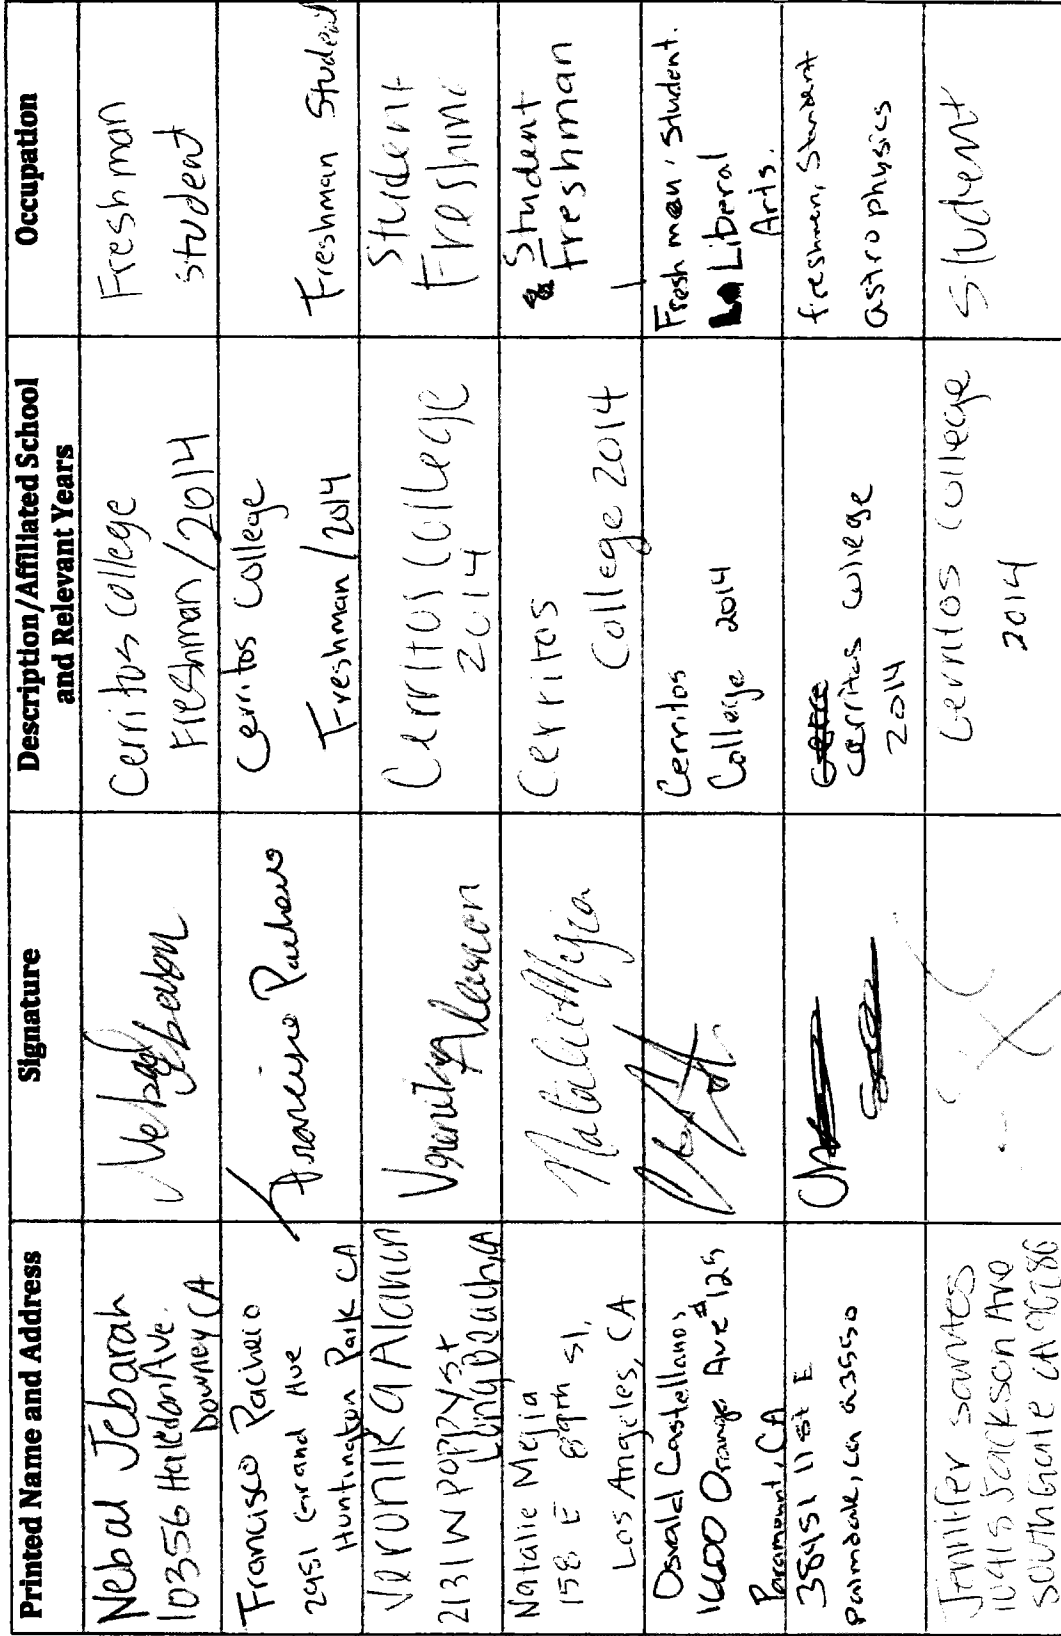 Printed Name and Address
Signature
Description/Affiliated School
and Relevant Years
Occupation
Nebal Jebarah
10356 Haledon Ave.
Downey CA
Cerritos College
Freshman/2014
Freshman
Student
Francisco Pacheco
2951 Grand Ave
Huntington Park CA
Francisco Pacheco
Cerritos College
Freshman/2014
Freshman Student
Veronika Alarcon
2131 W Poppy St
Long Beach, CA
Veronika Alarcon
Cerritos College
2014
Student
Freshman
Natalie Mejia
158 E
St,
Los Angeles, CA
Natalie Mejia
Cerritos
College 2014
Student
Freshman
Osvald Castellanos
16600 Orange Ave #125
Paramount, CA
Cerritos
College 2014
Freshman, Student.
Liberal
Arts.
38451 11 st E
palmdale, ca 93550
Cerritos College
2014
freshmen, Student
astrophysics
Jennifer santos
10415 Jackson Ave
South Gate CA 90280
Cerritos College
2014
Student